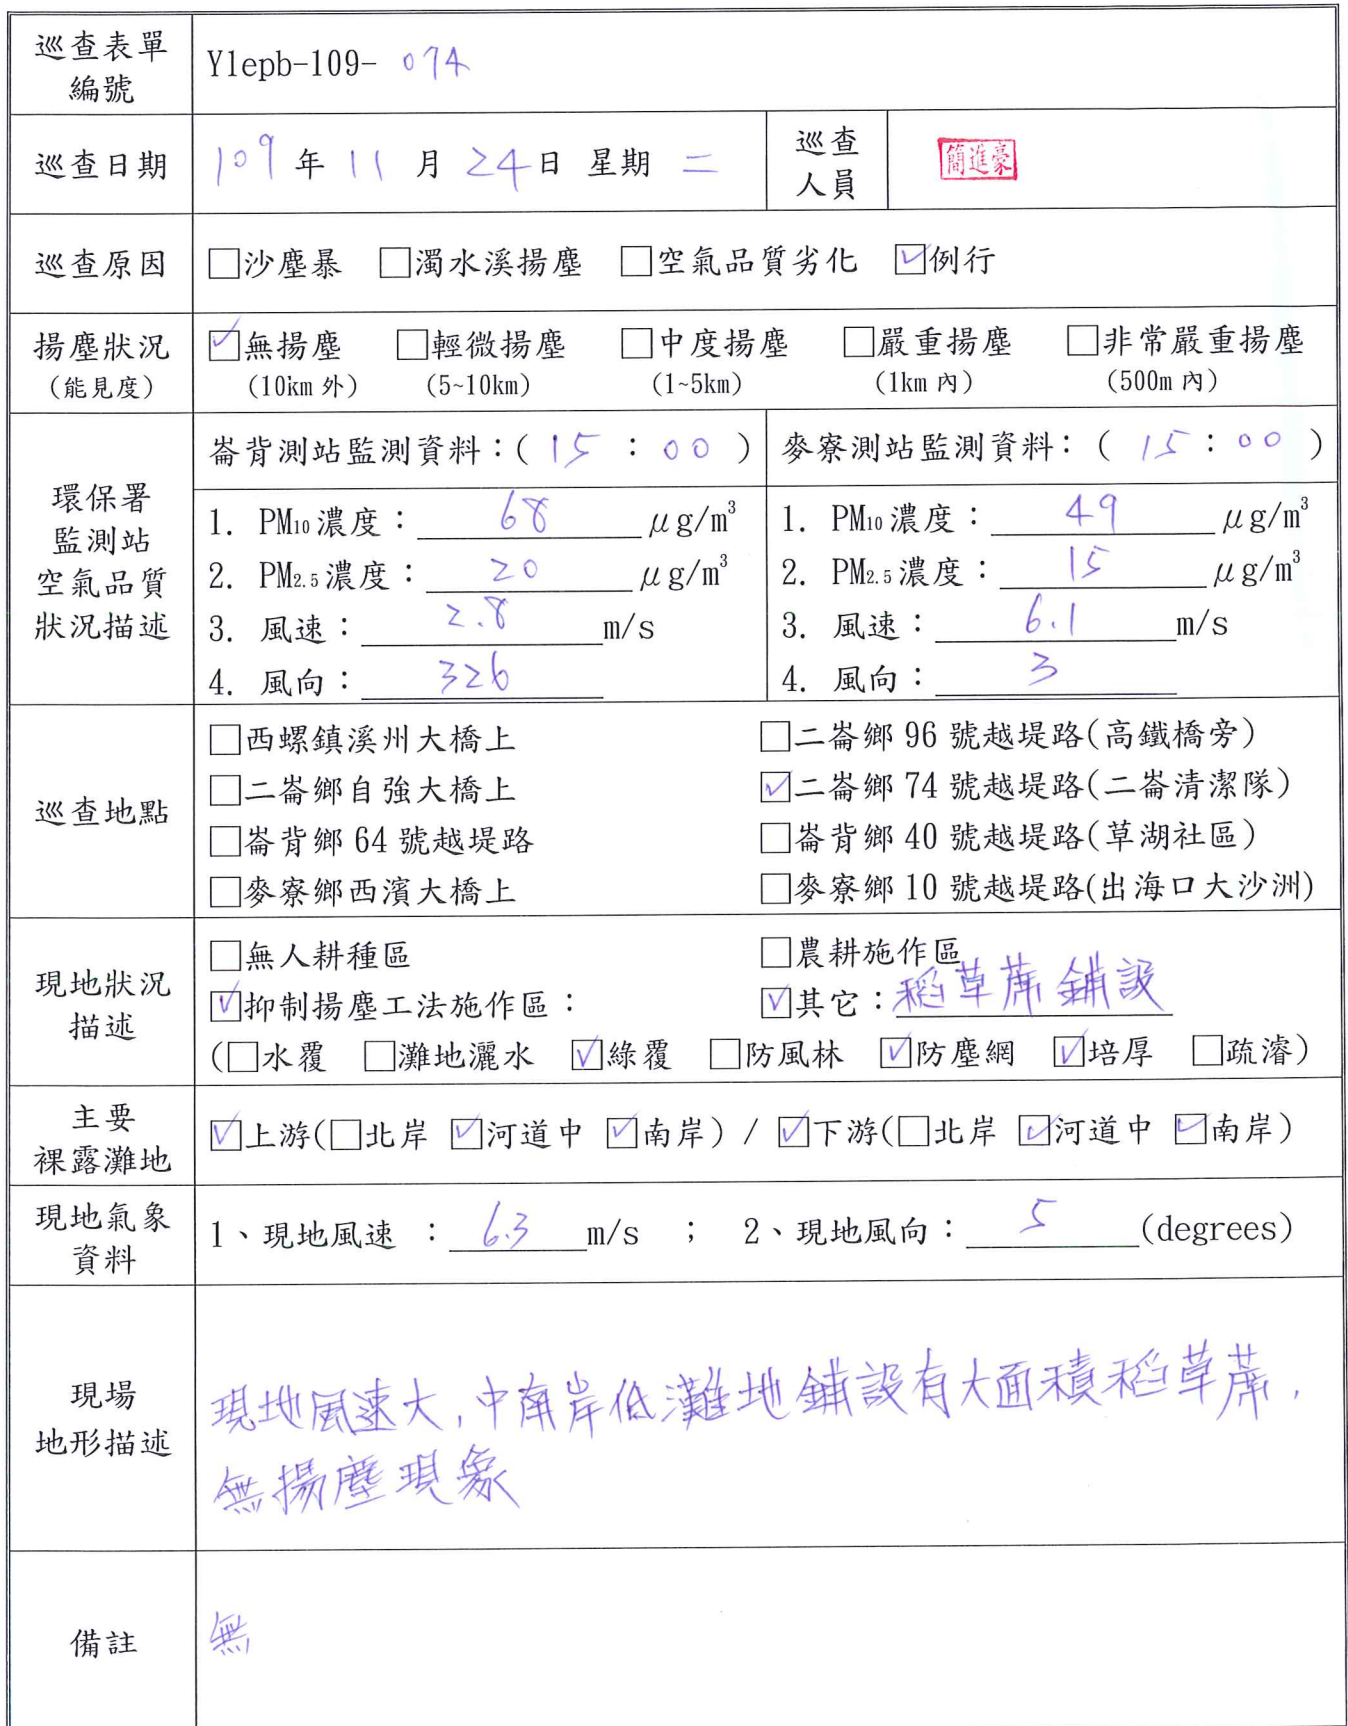 巡查表單
編號
Ylepb-109- 074
巡查日期
109 年 11 月 24 日 星期 二
巡查
人員
簡進豪
巡查原因
□沙塵暴 □濁水溪揚塵 □空氣品質劣化 ☑例行
揚塵狀況
(能見度)
☑無揚塵 □輕微揚塵 □中度揚塵 □嚴重揚塵 □非常嚴重揚塵
(10km 外) (5~10km) (1~5km) (1km 內) (500m 內)
環保署
監測站
空氣品質
狀況描述
崙背測站監測資料：( 15 : 00 )
1. PM10 濃度： 68 μg/m³
2. PM2.5 濃度： 20 μg/m³
3. 風速： 2.8 m/s
4. 風向： 326
麥寮測站監測資料： ( 15 : 00 )
1. PM10 濃度： 49 μg/m³
2. PM2.5 濃度： 15 μg/m³
3. 風速： 6.1 m/s
4. 風向： 3
巡查地點
□西螺鎮溪州大橋上 □二崙鄉 96 號越堤路(高鐵橋旁)
□二崙鄉自強大橋上 ☑二崙鄉 74 號越堤路(二崙清潔隊)
□崙背鄉 64 號越堤路 □崙背鄉 40 號越堤路(草湖社區)
□麥寮鄉西濱大橋上 □麥寮鄉 10 號越堤路(出海口大沙洲)
現地狀況
描述
□無人耕種區 □農耕施作區
☑抑制揚塵工法施作區： ☑其它：稻草蓆鋪設
(□水覆 □灘地灑水 ☑綠覆 □防風林 ☑防塵網 ☑培厚 □疏濬)
主要
裸露灘地
☑上游(□北岸 ☑河道中 ☑南岸) / ☑下游(□北岸 ☑河道中 ☑南岸)
現地氣象
資料
1、現地風速 ： 6.3 m/s ； 2、現地風向： 5 (degrees)
現場
地形描述
現地風速大,中南岸低灘地鋪設有大面積稻草蓆,
無揚塵現象
備註
無